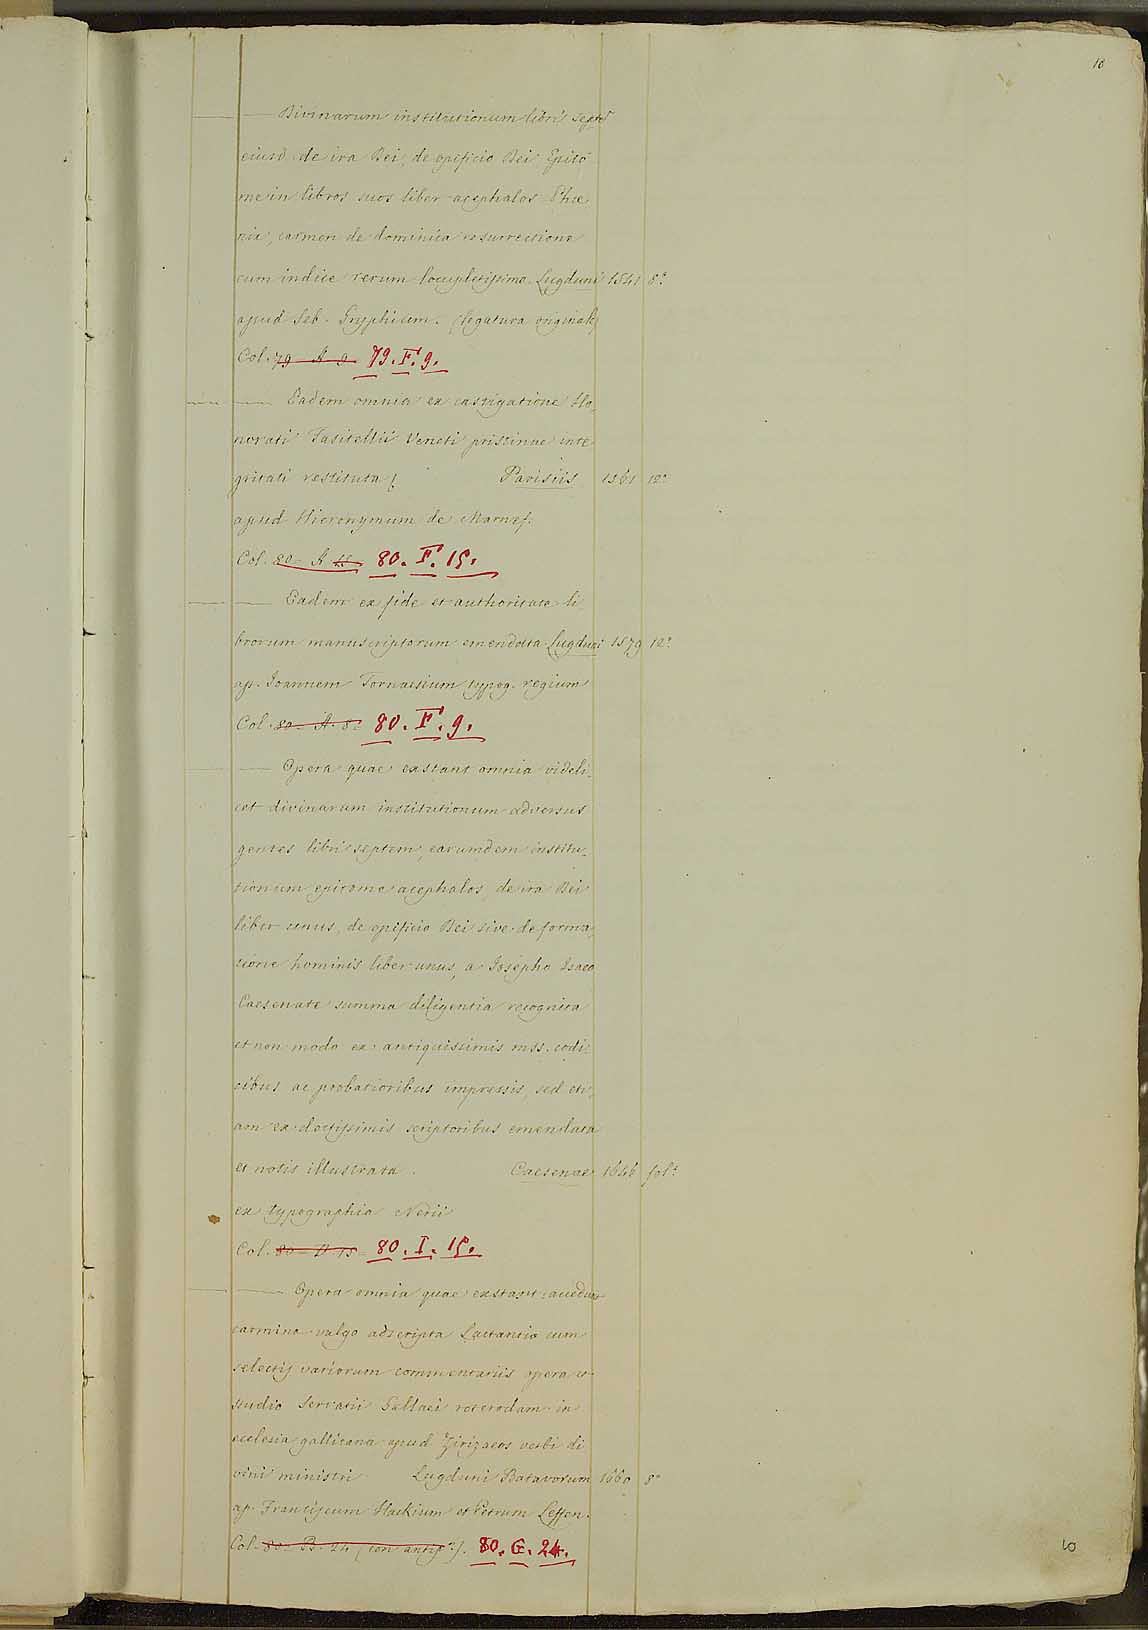 10
— Divinarum institutionum libri septē
eiusd. de ira Dei, de opificio Dei, Epito
me in libros suos liber acephalos Phœ
nix, carmen de dominica resurrectione
cum indice rerum locupletissimo. Lugduni 1541 8°
apud Seb. Gryphium. (legatura originale)
Col. 79 A 9 79. F. 9.
— Eadem omnia ex castigatione Ho,
norati Fasitellii Veneti pristinae inte
gritati restituta Parisiis 1561 12°
apud Hieronymum de Marnef.
Col. 80 A 15 80. F. 15.
— Eadem ex fide et authoritate li
brorum manuscriptorum emendata Lugduni 1579 12°
ap. Ioannem Tornaesium typog. regium
Col. 80 A. 8. 80. F. 9.
— Opera quae exstant omnia videli-
cet divinarum institutionum adversus
gentes libri septem, earumdem institu-
tionum epitome acephalos, de ira Dei
liber unus, de opificio Dei sive de forma,
tione hominis liber unus, a Iosepho Isaeo
Caesenate summa diligentia recognita
et non modo ex antiquissimis mss. codi-
cibus ac probatioribus impressis, sed eti,
am ex doctissimis scriptoribus emendata
et notis illustrata. Caesenae 1646 fol°
ex typographia Nerii
Col. 80 D 15 80. I. 15.
— Opera omnia quae exstant: accedunt
carmina vulgo adscripta Lactantio cum
selectis variorum commentariis opera et
studio Servatii Gallaei roterodam. in
ecclesia gallicana apud Zirizaeos verbi di
vini ministri Lugduni Batavorum 1660 8°
ap. Franciscum Hackium et Petrum Leffen.
Col. 80 B. 24 (con antip°). 80. G. 24.
10